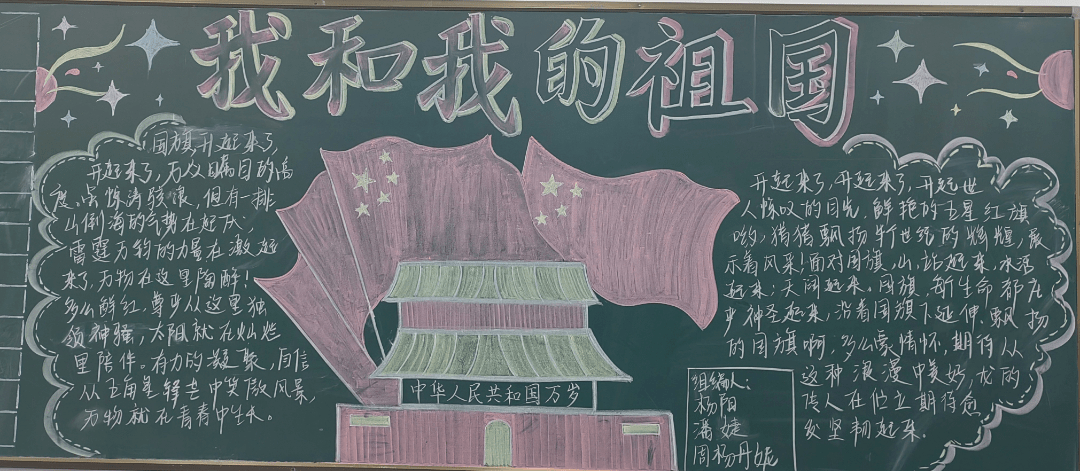 我和我的祖国
国旗升起来了,
升起来了,万众瞩目的高
度,虽惊涛骇浪,但有一排
山倒海的气势在起伏,
雷霆万钧的力量在激起
来了,万物在这里陶醉!
多么醉红,尊步从这里独
领神骚,太阳就在灿烂
里陪伴。有力的凝聚,自信
从五角星锋芒中笑傲风景,
万物就在青春中生长。
中华人民共和国万岁
升起来了,升起来了,升起世
人惊叹的目光,鲜艳的五星红旗
哟,猎猎飘扬新世纪的辉煌,展
示着风采!面对国旗,山,站起来,水活
起来;天阔起来,国旗,新生命都在
步神圣起来,沿着国旗下延伸、飘扬
的国旗啊,多么豪情怀,期待从
这种浪漫中美好,龙的
传人在伫立期待愈
发坚韧起来。
组编人:
杨阳
潘婕
周杨丹妮